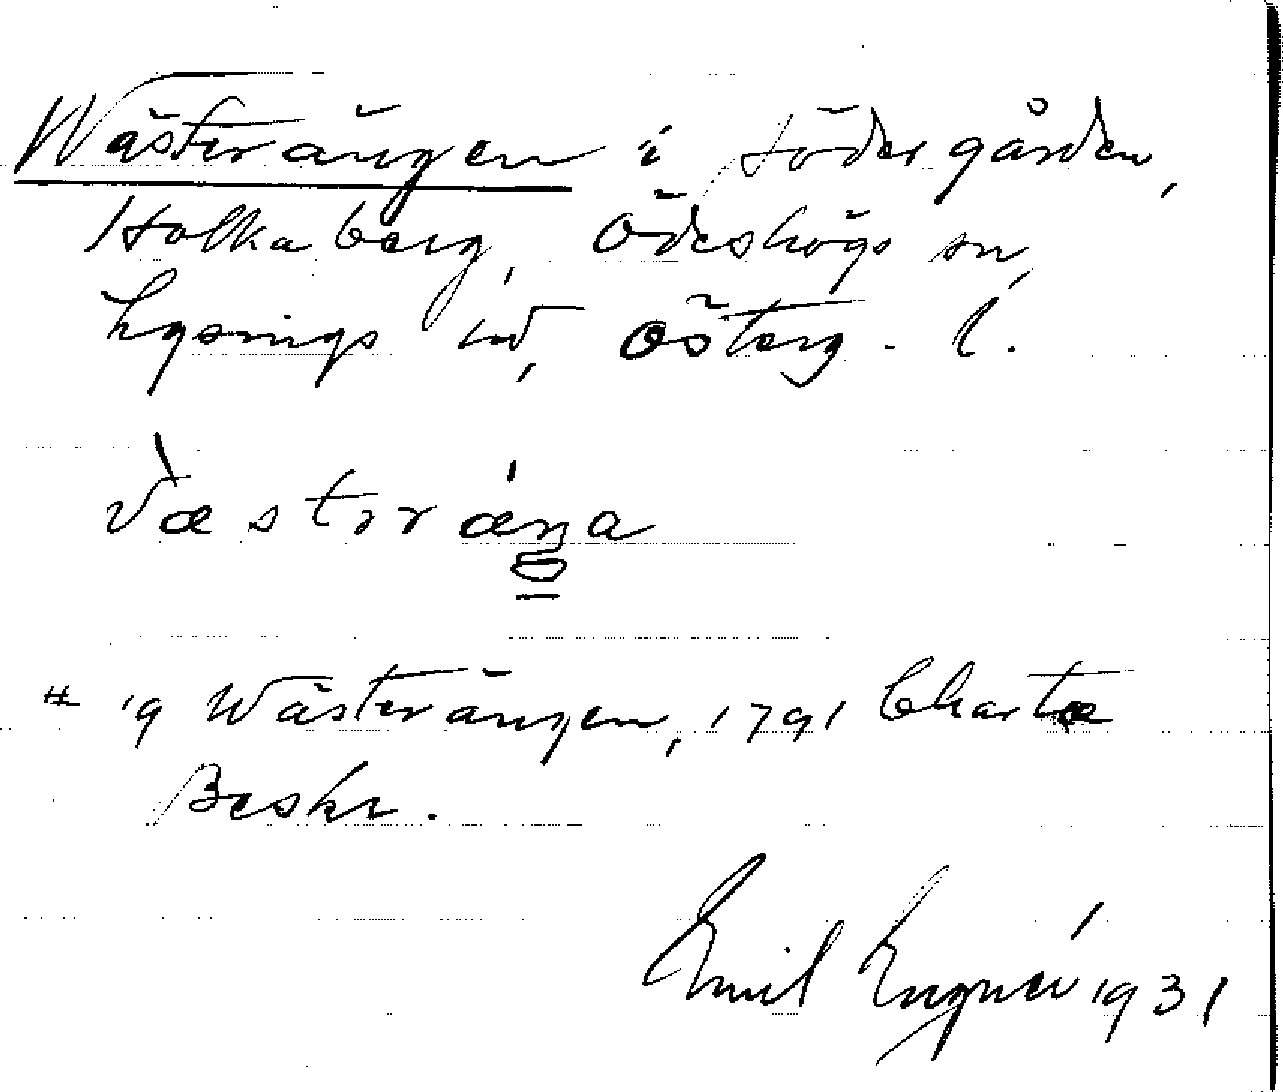 Wästerängen i Södergården,
Holkaberg, Ödeshögs sn,
Lysings hd, Österg. l.
væstrræŋa
# 19 Wästerängen, 1791 Charta
Beskr.
Emil 1931